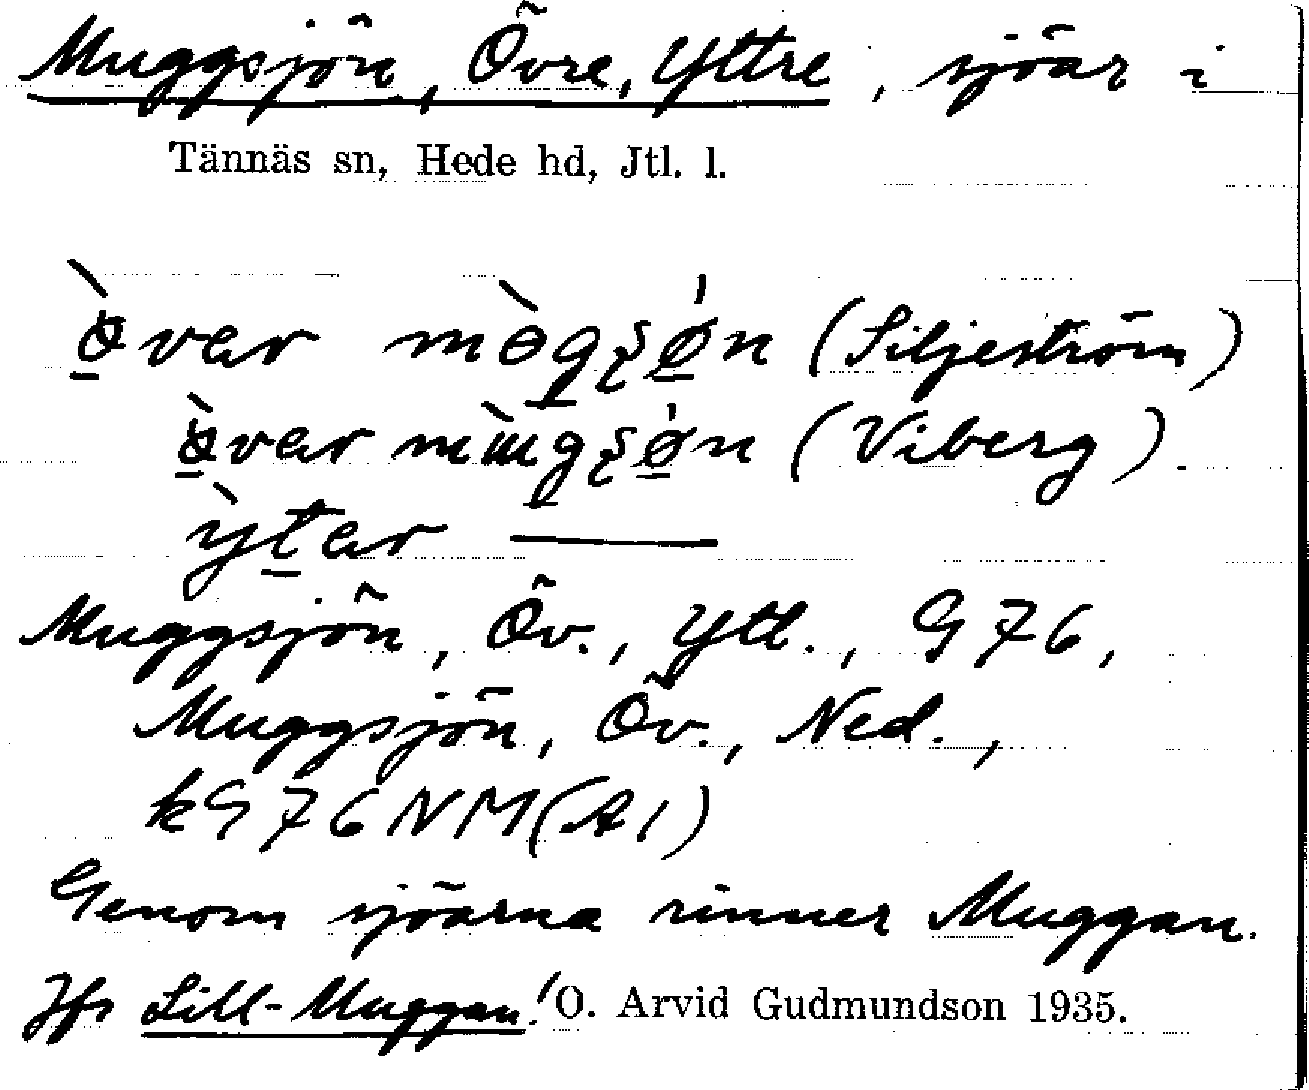 Muggsjön, Övre, Yttre, sjöar i
Tännäs sn, Hede hd, Jtl. l.
(Siljeström)
(Viberg).
Muggsjön, Öv., Ytt., G 76,
Muggsjön, Öv., Ned.,
kG 76 NM (A1)
Genom sjöarna rinner Muggan.
Jfr Lill-Muggan! O. Arvid Gudmundson 1935.